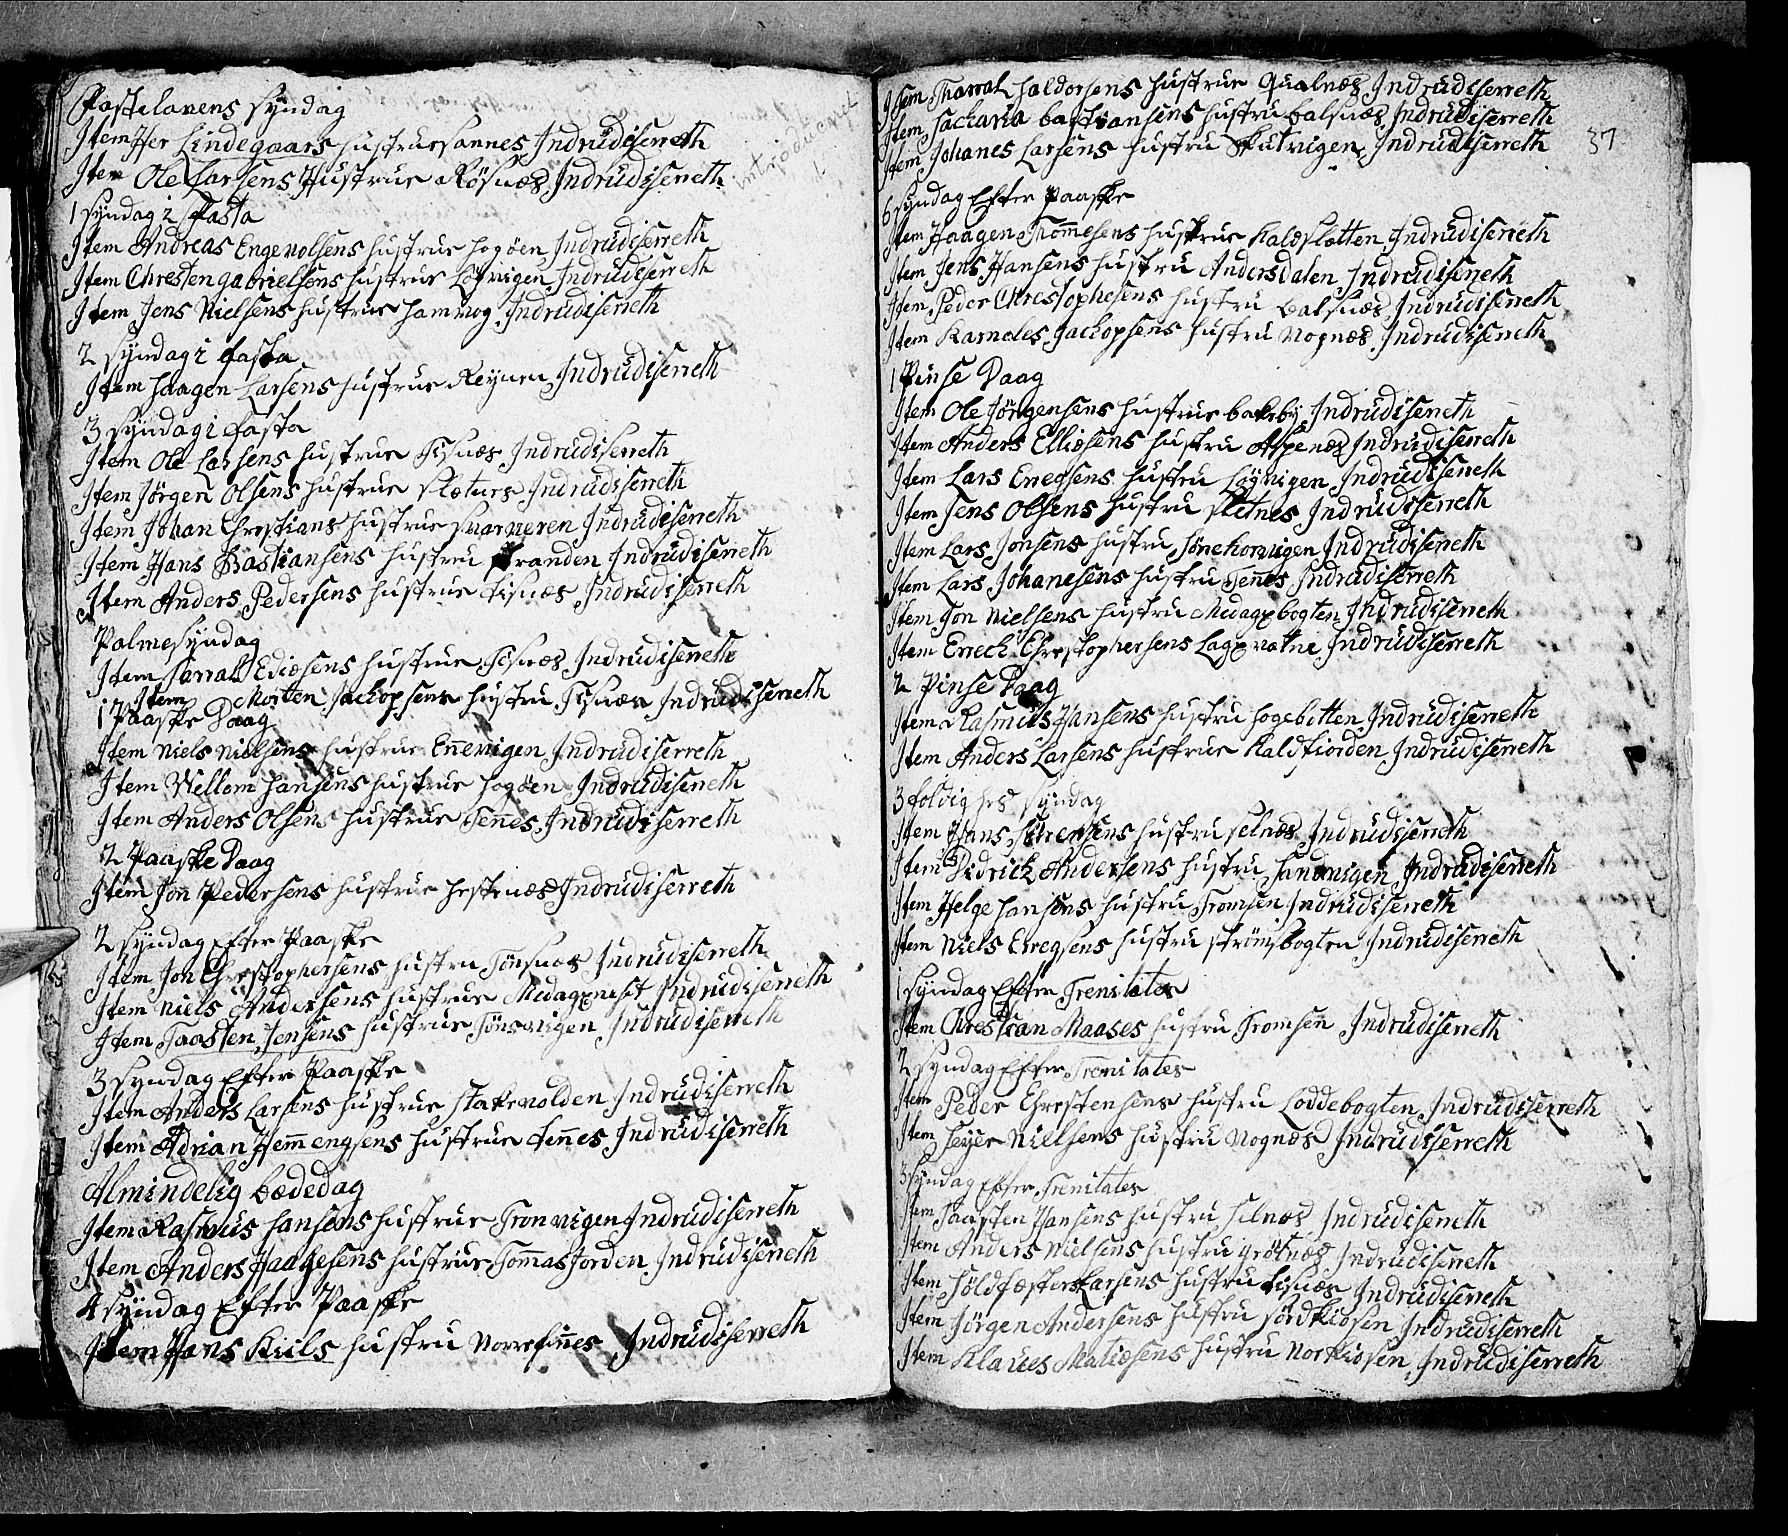 Fastelavens Syndag
introducerit
Item Her Lindegaars hustrue sannes Indrüdiserreth
Item Ole Larsens Hustrue Rösnæs Indrüdiserreth
1 Syndag i Fasta
Item Andreas Engevolsens hustrue hogöen Indrüdiserreth
Item Chresten gabrielsens hustrue Löyvigen Indrüdiserreth
Item Jens Nielsens hustrue hamvog Indrüdiserreth
2 Syndag i fasta
Item haagen Larsens hustrue Reynen Indrüdiserreth
3 Syndag i fasta
Item Ole Larsens hustrue Tisnæs Indrüdiserreth
Item Jörgen Olsens hustrue slætnes Indrüdiserreth
Item Johan Chrestians hustrue svarveren Indrüdiserreth
Item Hans Bastiansens hustru stranden Indrüdiserreth
Item Anders Pedersens hustrue tisnæs Indrüdiserreth
Palmesyndag
Item Tarral Ediæsens hustrue Tisnæs Indrüdiserreth
Item Morten Jackopsens hustru Tisnæs Indrüdiserreth
1 Paaske Daag
Item Niels Nielsens hustrue Ennevigen Indrüdiserreth
Item Vellom hansens hustrue hogöen Indrüdiserreth
Item Anders Olsens hustrue Tennes Indrüdiserreth
2 Paaske Daag
Item Jon Pedersens hustrue hestnæs Indrüdiserreth
2 Syndag Efter Paaske
Item Jon Chrestophersens hustru Tönsnæs Indrüdiserreth
Item Niels Andersens hustrue Medagxnesit Indrüdiserreth
Item Taarsten Jensens hustrue Tönsvigen Indrüdiserreth
3 Syndag Efter Paaske
Item Anders Larsens hustrue stakevolden Indrüdiserreth
Item Adrian Hemmengsens hustrue tennes Indrüdiserreth
Almindelig bædedag
Item Rasmus hansens hustrue Tronvigen Indrüdiserreth
Item Anders Haagesens hustrue Tommasjorden Indrüdiserreth
4 Syndag Efter Paaske
Item Hans Kiils hustru Norrefinnes Indrüdiserreth
37
Item Tharral haldorsens hustrue Qualnæs Indrüdiserreth
Item Sacharia bastiansens hustru balsnæs Indrüdiserreth
Item Johanes Larsens hustru Skutvigen Indrüdiserreth
6 Syndag Efter Paaske
Item Haagen Thommesens hustrue Kaldslotten Indrüdiserreth
Item Jens Hansens hustru Andersdalen Indrüdiserreth
Item Peder Chrestophesens hustru balsnæs Indrüdiserreth
Item Karneles Jackopsens hustru Vognæs Indrüdiserreth
1 Pinse Daag
Item Ole Jörgensens hustrue bakeby Indrüdiserreth
Item Anders Elliæsens hustru Aspenæs Indrüdiserreth
Item Lars Eneosens hustru Löyvigen Indrüdiserreth
Item Jens Olsens hustru sletnes Indrüdiserreth
Item Lars Jonsens hustru Jönehorvigen Indrüdiserreth
Item Lars Johanesens hustru Tenes Indrüdiserreth
Item Jon Nielsens hustru Medagxbogten Indrüdiserreth
Item Erech Chrestophersens Lagxvatne Indrüdiserreth
2 Pinse Daag
Item Rasmus Hansens hustru hogebotten Indrüdiserreth
Item Anders Larsens hustrue Kaldfiorden Indrüdiserreth
3 foldig hes Syndag
Item Hans Sörensens hustru selnæs Indrüdiserreth
Item Didrick Andersens hustru Sandvigen Indrüdiserreth
Item Helge hansens hustru Tromsen Indrüdiserreth
Item Niels Erregsens hustru strömsbogten Indrüdiserreth
1 Syndag Efter Trenitates
Item Chrestian Maases hustru Tromsen Indrüdiserreth
2 Syndag Efter Trenitates
Item Peder Chrestensens hustru Loddebogten Indrüdiserreth
Item Seyer Nielsens hustru Vognæs Indrüdiserreth
3 Syndag Efter Trenitates
Item Taarsten Hansens hustru silnæs Indrüdiserreth
Item Anders Nielsens hustru grötnæs Indrüdiserreth
Item Söldfæster Larsens hustru tisnæs Indrüdiserreth
Item Jörgen Andersens hustru Sördkiosen Indrüdiserreth
Item Klaües Matiæsens hustru Norkiosen Indrüdiserreth